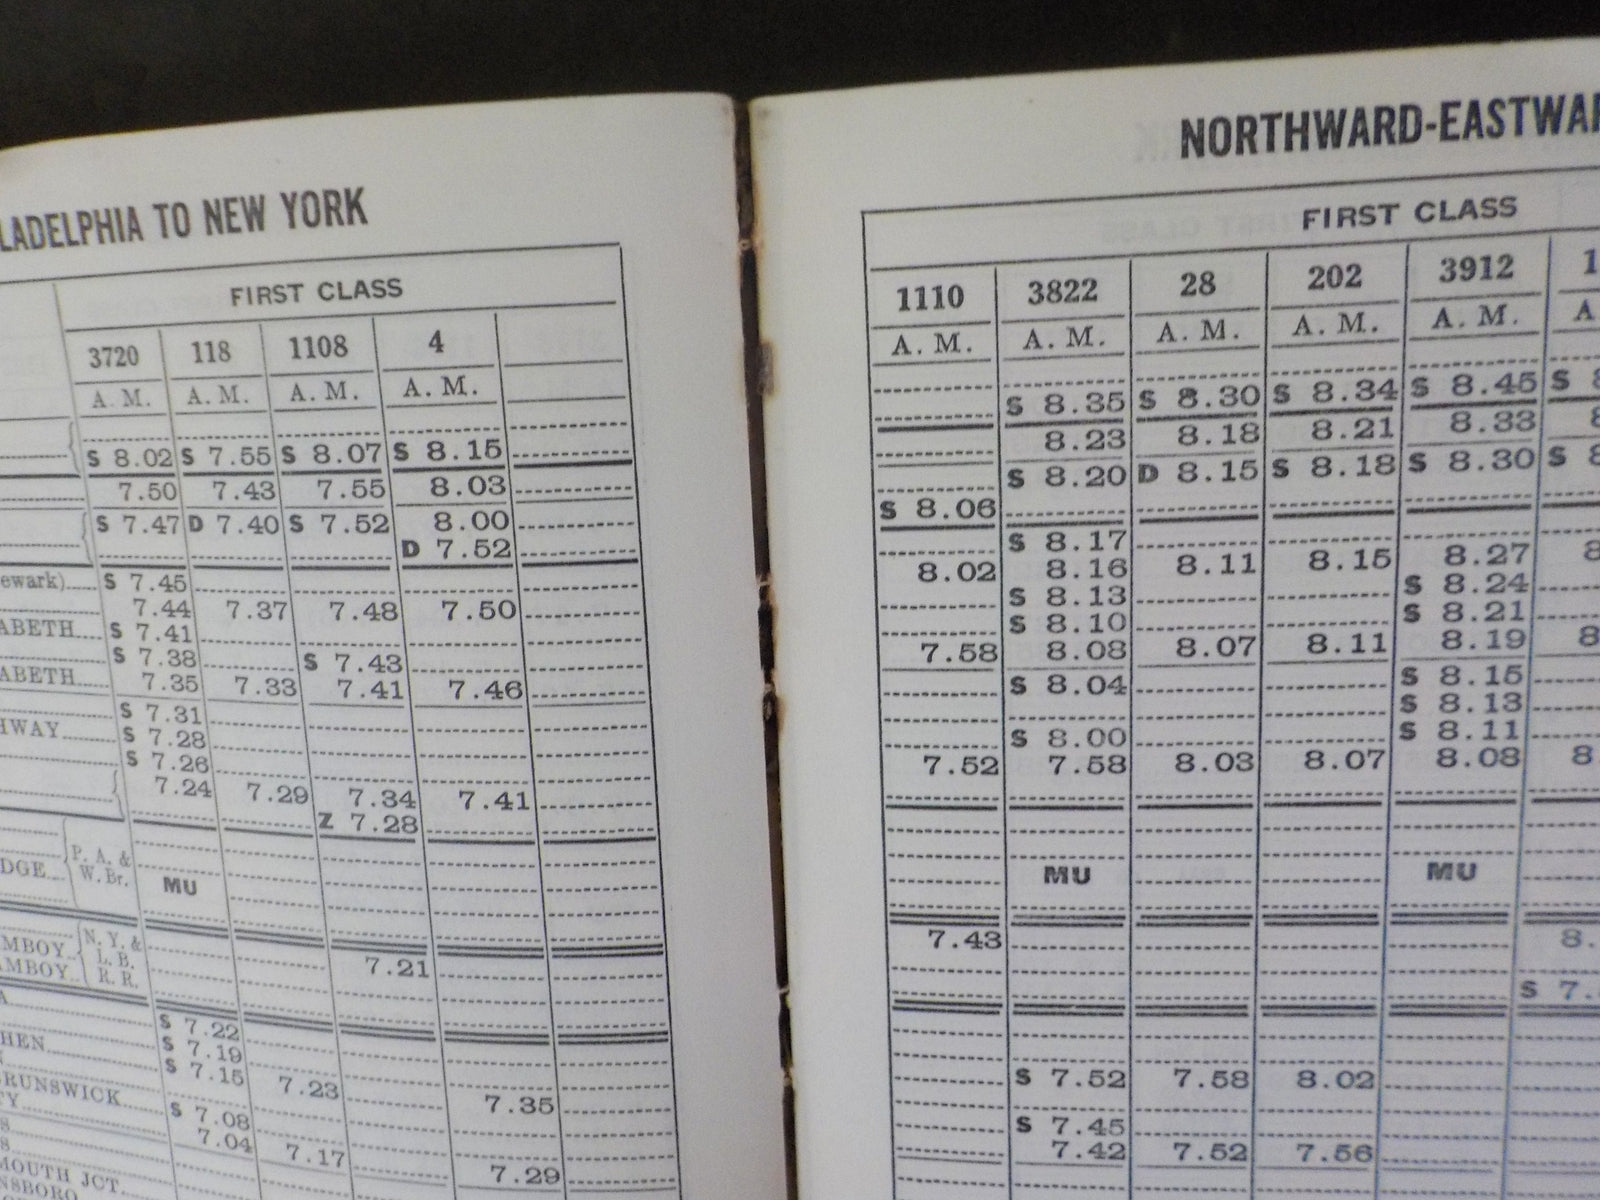 LADELPHIA TO NEW YORK
FIRST CLASS
3720 118 1108 4
A. M. A. M. A. M. A. M.
S 8.02 S 7.55 S 8.07 S 8.15
7.50 7.43 7.55 8.03
S 7.47 D 7.40 S 7.52 8.00
D 7.52
ewark) S 7.45
7.44 7.37 7.48 7.50
ABETH S 7.41
S 7.38 S 7.43
ABETH 7.35 7.33 7.41 7.46
S 7.31
HWAY S 7.28
S 7.26
7.24 7.29 7.34 7.41
Z 7.28
DGE P. A. &
W. Br. MU
MBOY N. Y. &
AMBOY L. B.
R. R. 7.21
A
S 7.22
HEN S 7.19
N S 7.15 7.23
RUNSWICK 7.35
TY S 7.08
S 7.04 7.17
S 7.29
MOUTH JCT.
NSBORO
NORTHWARD-EASTWAR
FIRST CLASS
1110 3822 28 202 3912 1
A. M. A. M. A. M. A. M. A. M. A
S 8.35 S 8.30 S 8.34 S 8.45 S 8
8.23 8.18 8.21 8.33 8
S 8.20 D 8.15 S 8.18 S 8.30 S 8
S 8.06
S 8.17
8.02 8.16 8.11 8.15 8.27 8
S 8.13 S 8.24
S 8.10 S 8.21
7.58 8.08 8.07 8.11 8.19 8
S 8.04 S 8.15
S 8.13
S 8.00 S 8.11
7.52 7.58 8.03 8.07 8.08 8.
MU MU
7.43 8.
S 7.
S 7.52 7.58 8.02
S 7.45
7.42 7.52 7.56